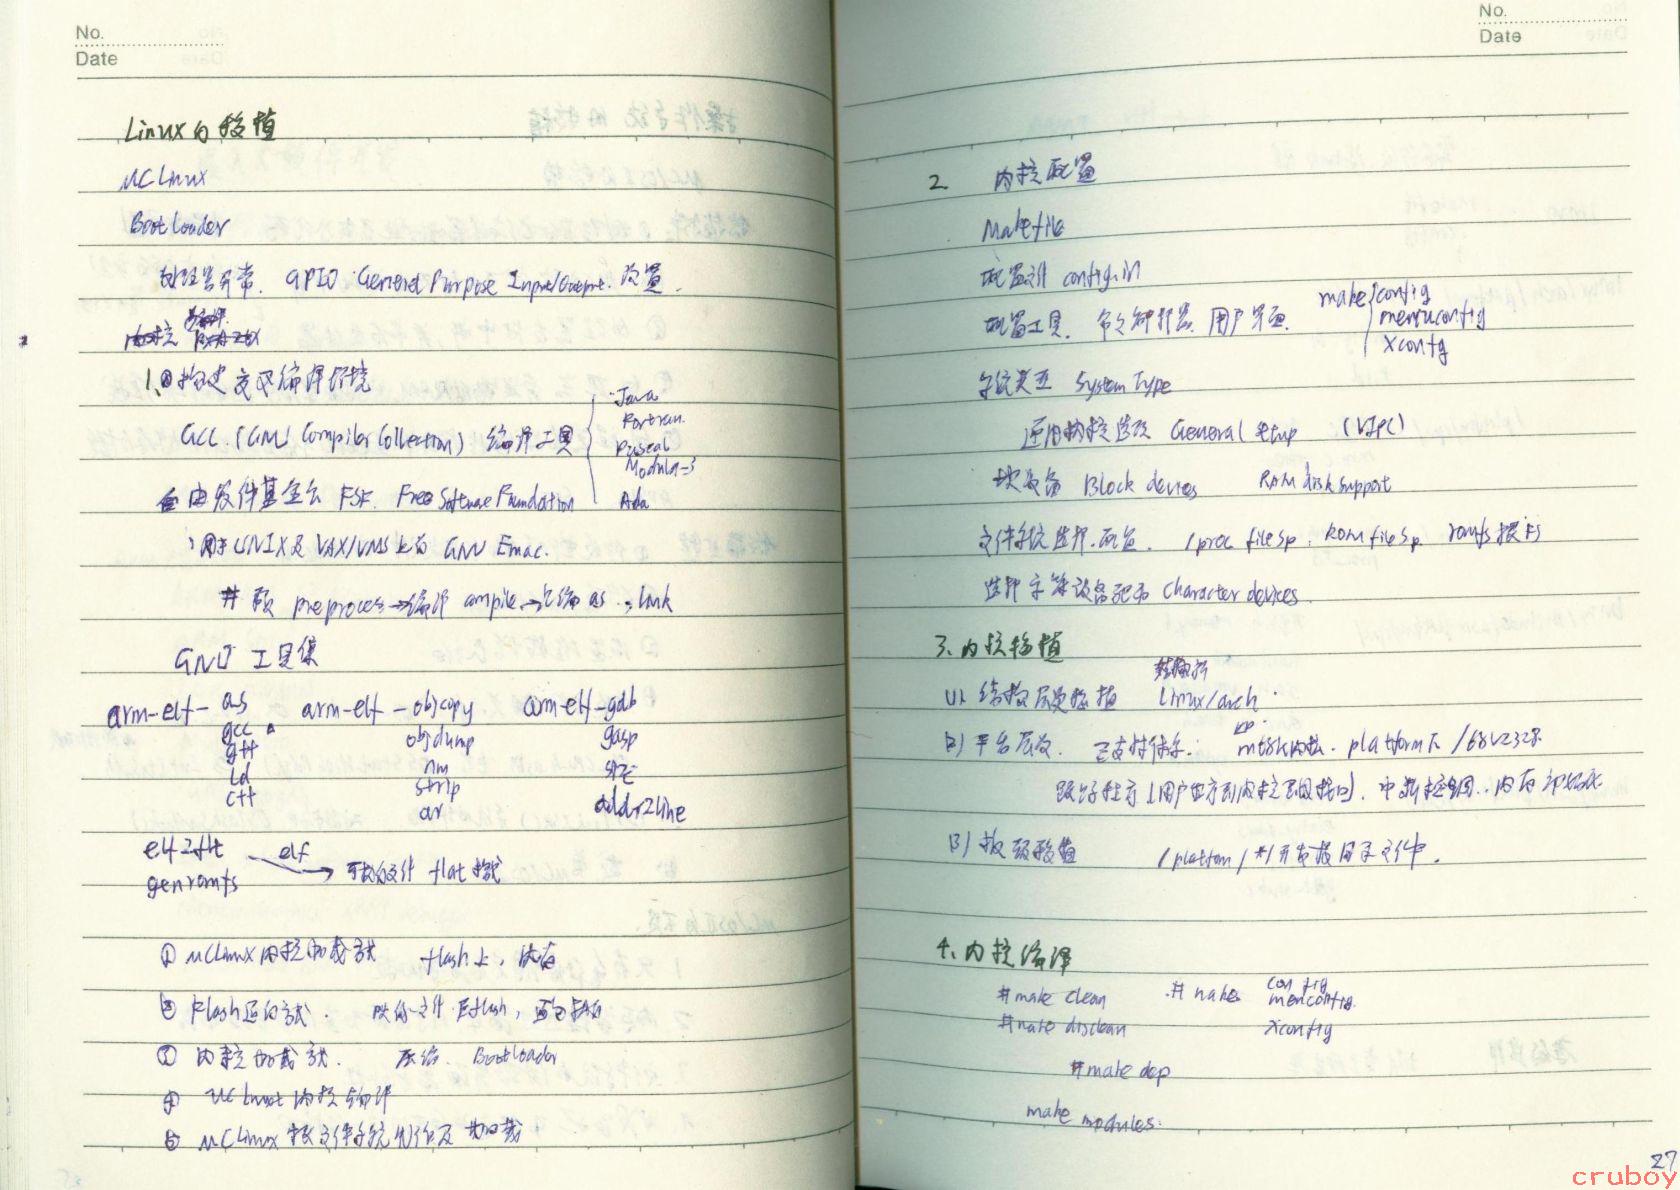 No.
Date
Linux的移植
uCLinux
BootLoader
处理器异常. GPIO: General Purpose Input/Output. 设置.
内核
1. 构建交叉编译环境
GCC. (GNU Compiler Collection) 编译工具
Java
Fortran.
Pascal
Modula-3
Ada
自由软件基金会 FSF. Free Software Foundation
用于UNIX及VAX/VMS上的 GNU Emac.
# 预 preprocess→编译 compile→汇编 as → link
GNU 工具集
arm-elf- as arm-elf -objcopy arm-elf-gdb
gcc objdump gasp
g++ nm size
ld strip addr2line
c++ ar
elf2flt elf
genromfs → 可执行文件 flat 格式
① uCLinux内核加载方式 flash上,
② Flash运行方式. 映像文件. flash,
③ 内核加载方式. 压缩. Bootloader
④ uCLinux 内核编译
⑤ uCLinux 根文件系统制作及加载
No.
Date
2. 内核配置
Makefile
配置文件 config.in
配置工具. 命令解释器. 用户界面. make
config
menuconfig
xconfig
系统类型 System Type
通用内核选项 General setup (VIPC)
块设备 Block devices RAM disk support
文件系统选择.配置. /proc filesp. ROM filesp. romfs根FS
选择字符设备配置 Character devices.
3. 内核移植
(1) 结构层次移植 Linux/arch.
(2) 平台层次. 已支持体系. m68k内核. platform下 /68V2328
启动程序 (用户程序到内核 接口). 中断控制.. 内存初始化
(3) 板级移植 /platform/*/开发板目录文件中.
4. 内核编译
#make clean # make config
menuconfig.
#make disclean xconfig
#make dep
make modules.
27
cruboy